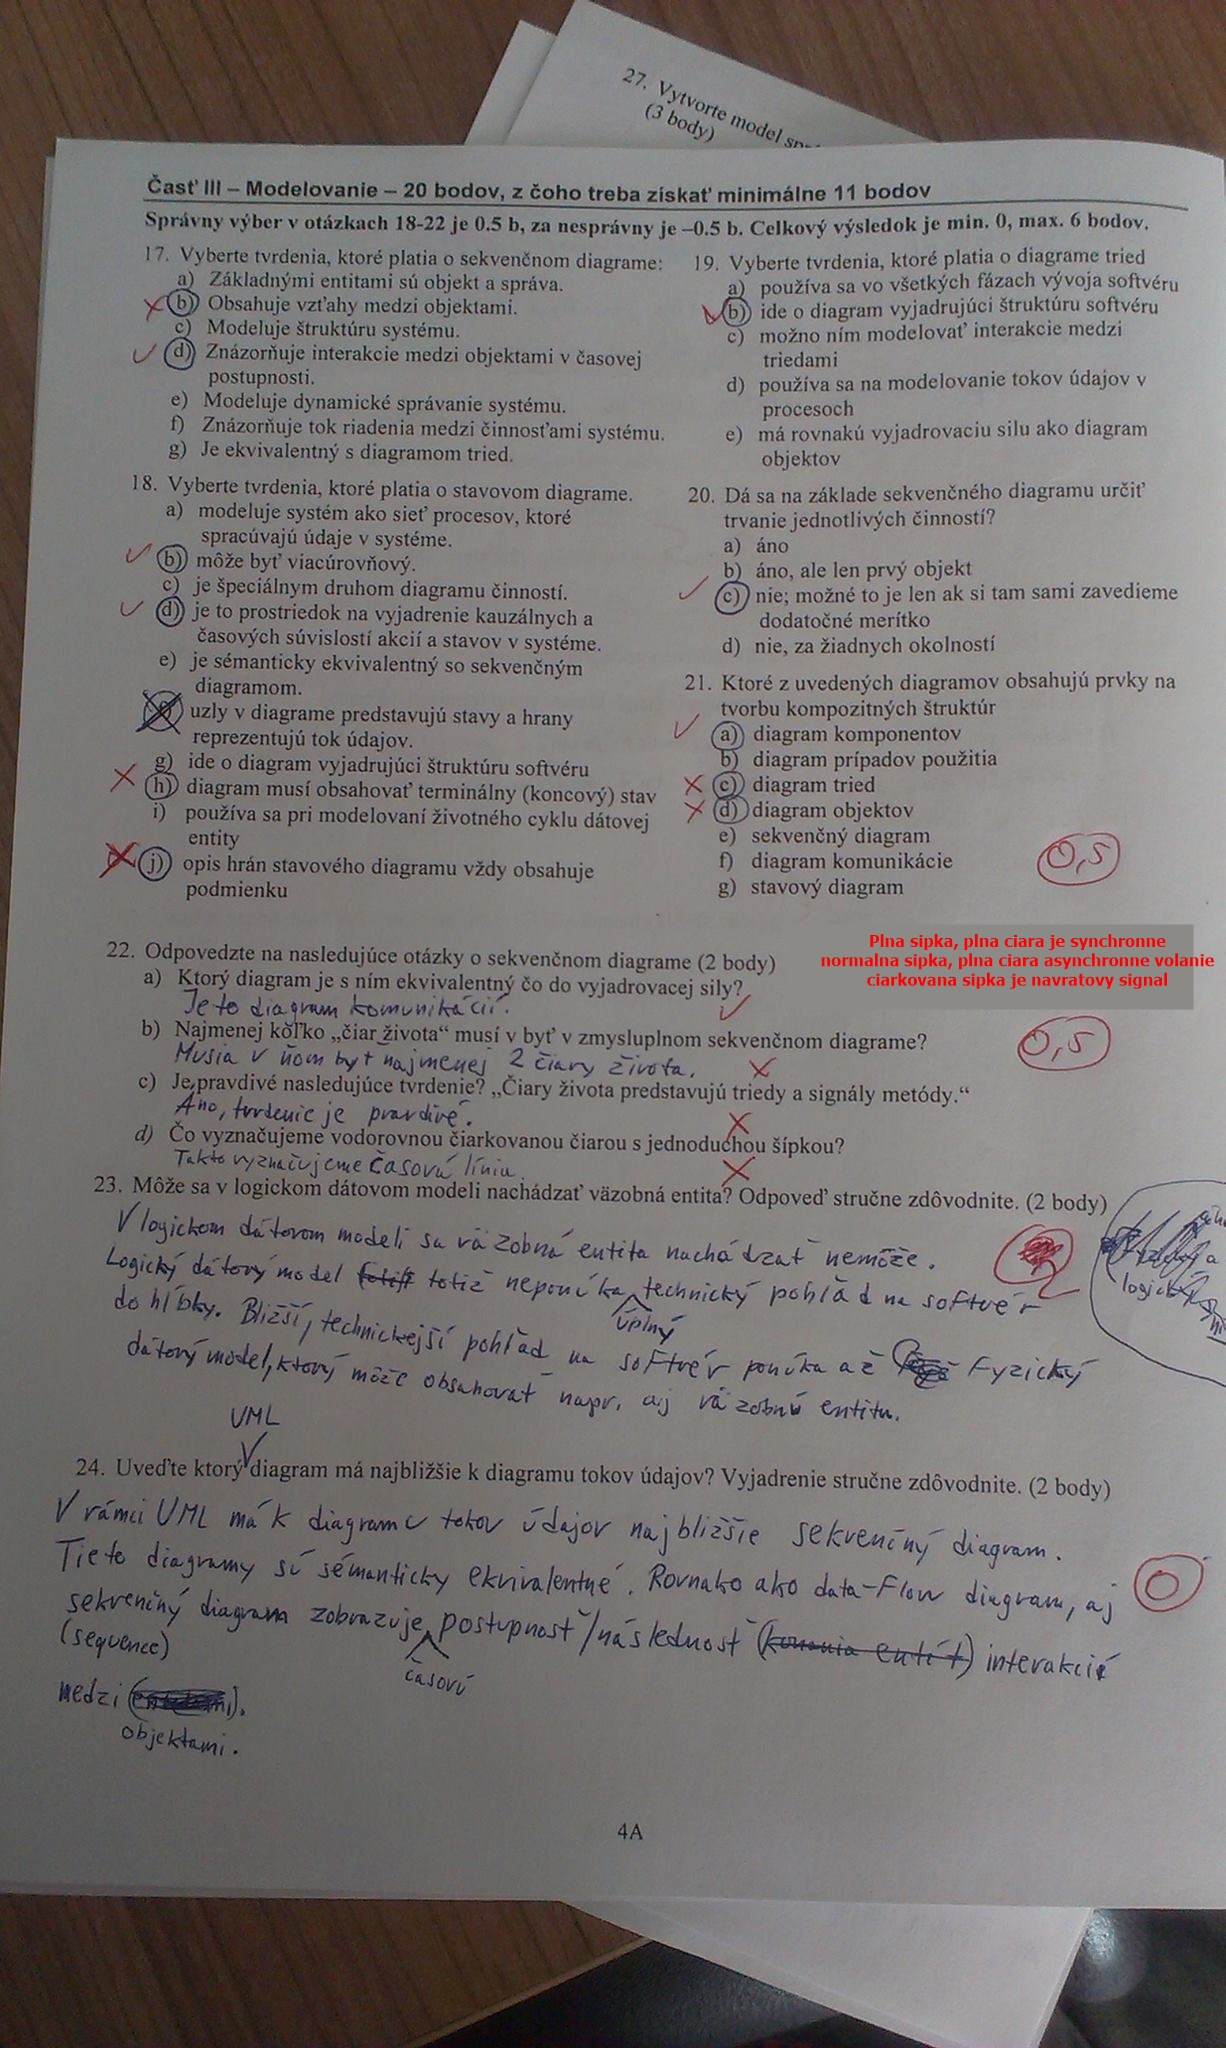 27. Vytvorte model
(3 body)
Časť III – Modelovanie – 20 bodov, z čoho treba získať minimálne 11 bodov
Správny výber v otázkach 18-22 je 0.5 b, za nesprávny je –0.5 b. Celkový výsledok je min. 0, max. 6 bodov.
17. Vyberte tvrdenia, ktoré platia o sekvenčnom diagrame:
a) Základnými entitami sú objekt a správa.
b) Obsahuje vzťahy medzi objektami.
c) Modeluje štruktúru systému.
d) Znázorňuje interakcie medzi objektami v časovej
postupnosti.
e) Modeluje dynamické správanie systému.
f) Znázorňuje tok riadenia medzi činnosťami systému.
g) Je ekvivalentný s diagramom tried.
18. Vyberte tvrdenia, ktoré platia o stavovom diagrame.
a) modeluje systém ako sieť procesov, ktoré
spracúvajú údaje v systéme.
b) môže byť viacúrovňový.
c) je špeciálnym druhom diagramu činností.
d) je to prostriedok na vyjadrenie kauzálnych a
časových súvislostí akcií a stavov v systéme.
e) je sémanticky ekvivalentný so sekvenčným
diagramom.
uzly v diagrame predstavujú stavy a hrany
reprezentujú tok údajov.
g) ide o diagram vyjadrujúci štruktúru softvéru
h) diagram musí obsahovať terminálny (koncový) stav
i) používa sa pri modelovaní životného cyklu dátovej
entity
j) opis hrán stavového diagramu vždy obsahuje
podmienku
19. Vyberte tvrdenia, ktoré platia o diagrame tried
a) používa sa vo všetkých fázach vývoja softvéru
b) ide o diagram vyjadrujúci štruktúru softvéru
c) možno ním modelovať interakcie medzi
triedami
d) používa sa na modelovanie tokov údajov v
procesoch
e) má rovnakú vyjadrovaciu silu ako diagram
objektov
20. Dá sa na základe sekvenčného diagramu určiť
trvanie jednotlivých činností?
a) áno
b) áno, ale len prvý objekt
c) nie; možné to je len ak si tam sami zavedieme
dodatočné merítko
d) nie, za žiadnych okolností
21. Ktoré z uvedených diagramov obsahujú prvky na
tvorbu kompozitných štruktúr
a) diagram komponentov
b) diagram prípadov použitia
c) diagram tried
d) diagram objektov
e) sekvenčný diagram
f) diagram komunikácie
g) stavový diagram
0,5
Plna sipka, plna ciara je synchronne
normalna sipka, plna ciara asynchronne volanie
ciarkovana sipka je navratovy signal
22. Odpovedzte na nasledujúce otázky o sekvenčnom diagrame (2 body)
a) Ktorý diagram je s ním ekvivalentný čo do vyjadrovacej sily?
Je to diagram komunikácií.
b) Najmenej koľko „čiar života“ musí v byť v zmysluplnom sekvenčnom diagrame?
0,5
Musia v ňom byť najmenej 2 čiary života.
c) Je pravdivé nasledujúce tvrdenie? „Čiary života predstavujú triedy a signály metódy.“
Áno, tvrdenie je pravdivé.
d) Čo vyznačujeme vodorovnou čiarkovanou čiarou s jednoduchou šípkou?
Takto vyznačujeme časovú líniu.
23. Môže sa v logickom dátovom modeli nachádzať väzobná entita? Odpoveď stručne zdôvodnite. (2 body)
V logickom dátovom modeli sa väzobná entita nachádzať nemôže.
Logický dátový model totiž neponúka technický pohľad na softvér
úplný
do hĺbky. Bližší, technickejší pohľad na softvér ponúka až Fyzický
dátový model, ktorý môže obsahovať napr. aj väzobnú entitu.
UML
24. Uveďte ktorý diagram má najbližšie k diagramu tokov údajov? Vyjadrenie stručne zdôvodnite. (2 body)
V rámci UML má k diagramu tokov údajov najbližšie sekvenčný diagram.
Tieto diagramy sú sémanticky ekvivalentné. Rovnako ako data-flow diagram, aj
0
sekvenčný diagram zobrazuje postupnosť/následnosť (konania entít) interakcií
(sequence)
časovú
medzi
objektami.
4A